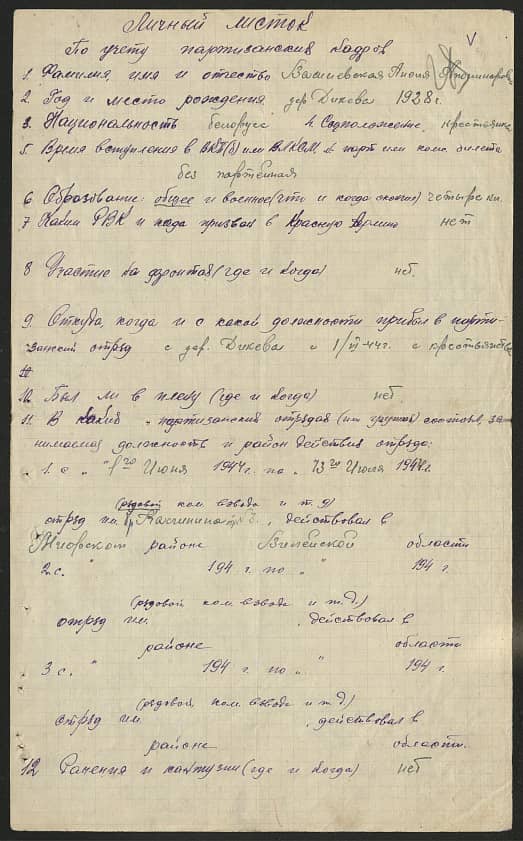 Личный листок
По учету партизанских кадров
1. Фамилия, имя и отчество Василевская
2. Год и место рождения дер Дикева 1928 г.
3. Национальность белорусс 4. Соцположение крестьянка
5. Время вступления в ВКП(б) или ВЛКСМ, № парт или комс билета
без партейная
6 Образование: общее и военное (что и когда окончил) четыре кл.
7 Каким РВК и когда призван в Красную Армию нет
8 Участие на фронтах (где и когда) нет.
9. Откуда, когда и с какой должности прибыл в парти-
занский отряд с дер. Дикева с 1/VI-44 г. с
10. Был ли в плену (где и когда) нет.
11. В каких партизанских отрядах (или группах) состоял, за-
нимаемая должность и район действия отряда:
1. с " 1го Июня 1944 г. по " 13го Июля 1944 г.
(рядовой ком. взвода и т. д)
отряд им. Калинина , действовал в
районе Вилейской области
2. с. " 194 г. по " " 194 г.
(рядовой, ком. взвода и т.д.)
отряд им. , действовал в
районе области
3 с. " 194 г. по " " 194 г.
(рядовой, ком. взвода и т.д)
отряд им. , действовал в
районе области.
12 Ранения и контузии (где и когда) нет